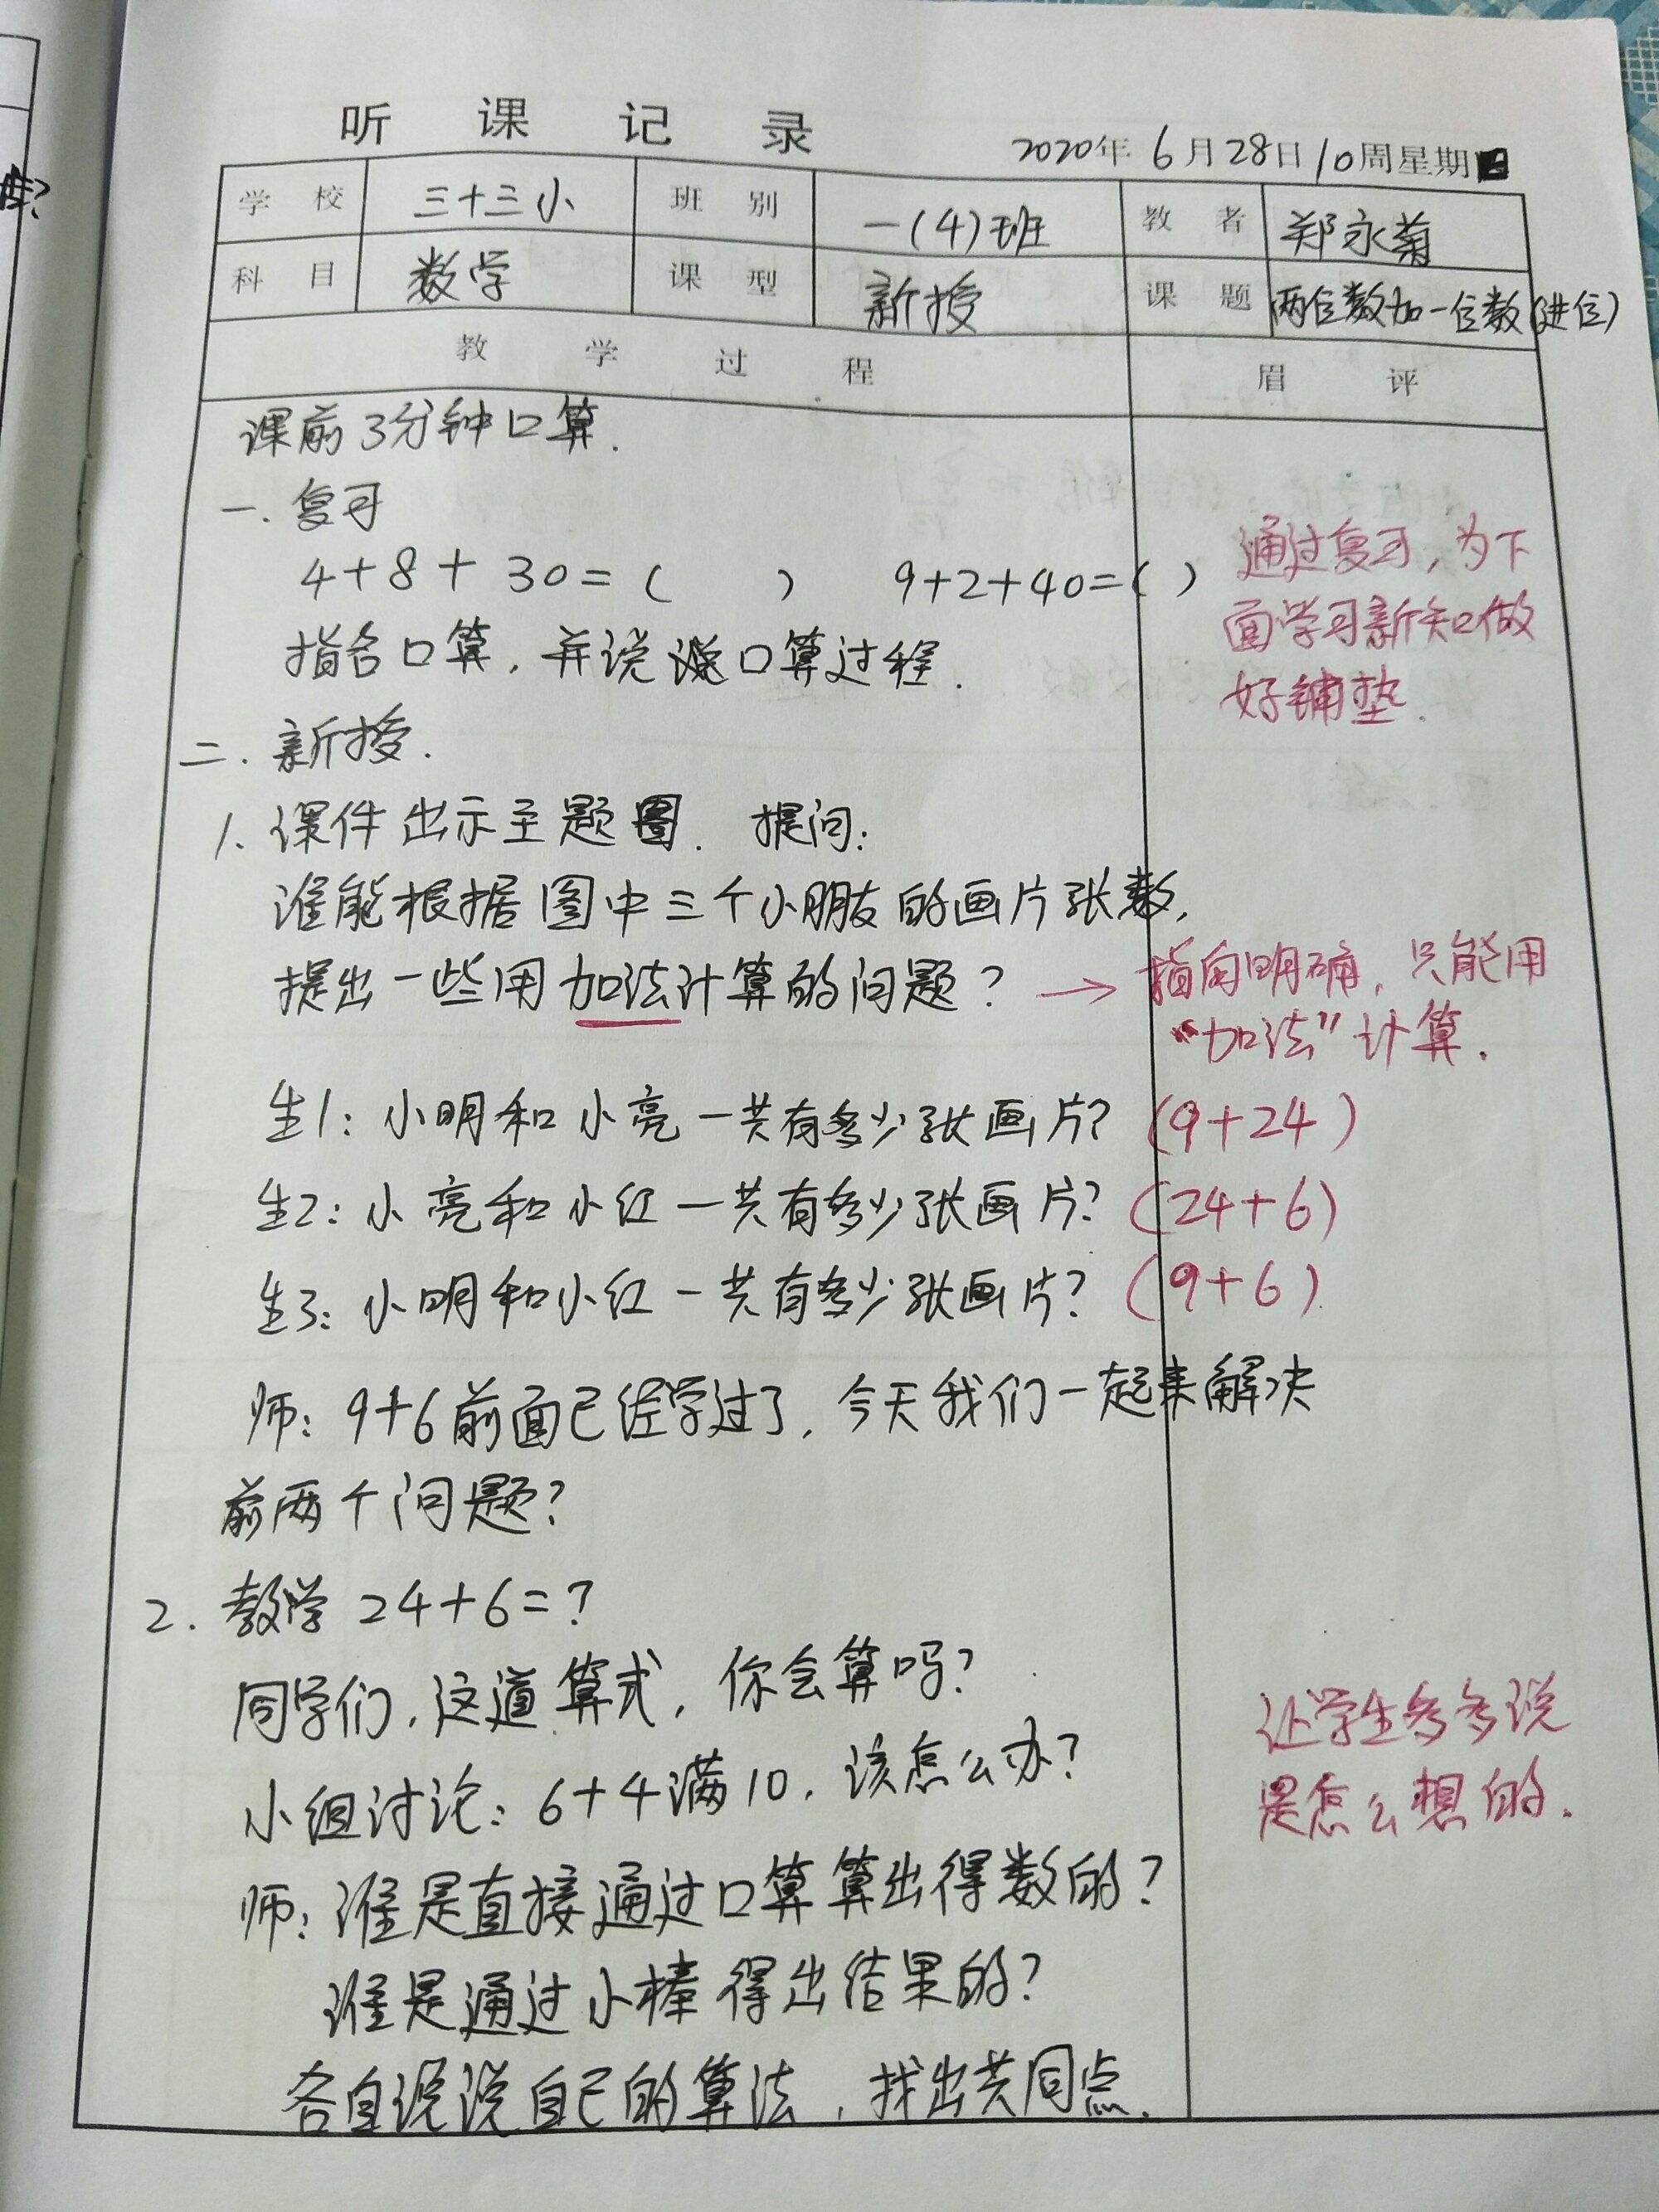 听课记录
2020年6月28日10周星期日
学校 三十三小 班别 一(4)班 教者 郑永菊
科目 数学 课型 新授 课题 两位数加一位数(进位)
教学过程 眉评
课前3分钟口算.
一.复习
4+8+30=( ) 9+2+40=( )
通过复习,为下
面学习新知做
好铺垫.
指名口算,并说说口算过程.
二.新授.
1、课件出示主题图. 提问:
谁能根据图中三个小朋友的画片张数,
提出一些用加法计算的问题?→指向明确,只能用
“加法”计算.
生1:小明和小亮一共有多少张画片?(9+24)
生2:小亮和小红一共有多少张画片?(24+6)
生3:小明和小红一共有多少张画片?(9+6)
师:9+6前面已经学过了,今天我们一起来解决
前两个问题?
2.教学24+6=?
同学们,这道算式,你会算吗?
小组讨论:6+4满10,该怎么办?
让学生多多说
是怎么想的.
师:谁是直接通过口算算出得数的?
谁是通过小棒得出结果的?
各自说说自己的算法,找出共同点.